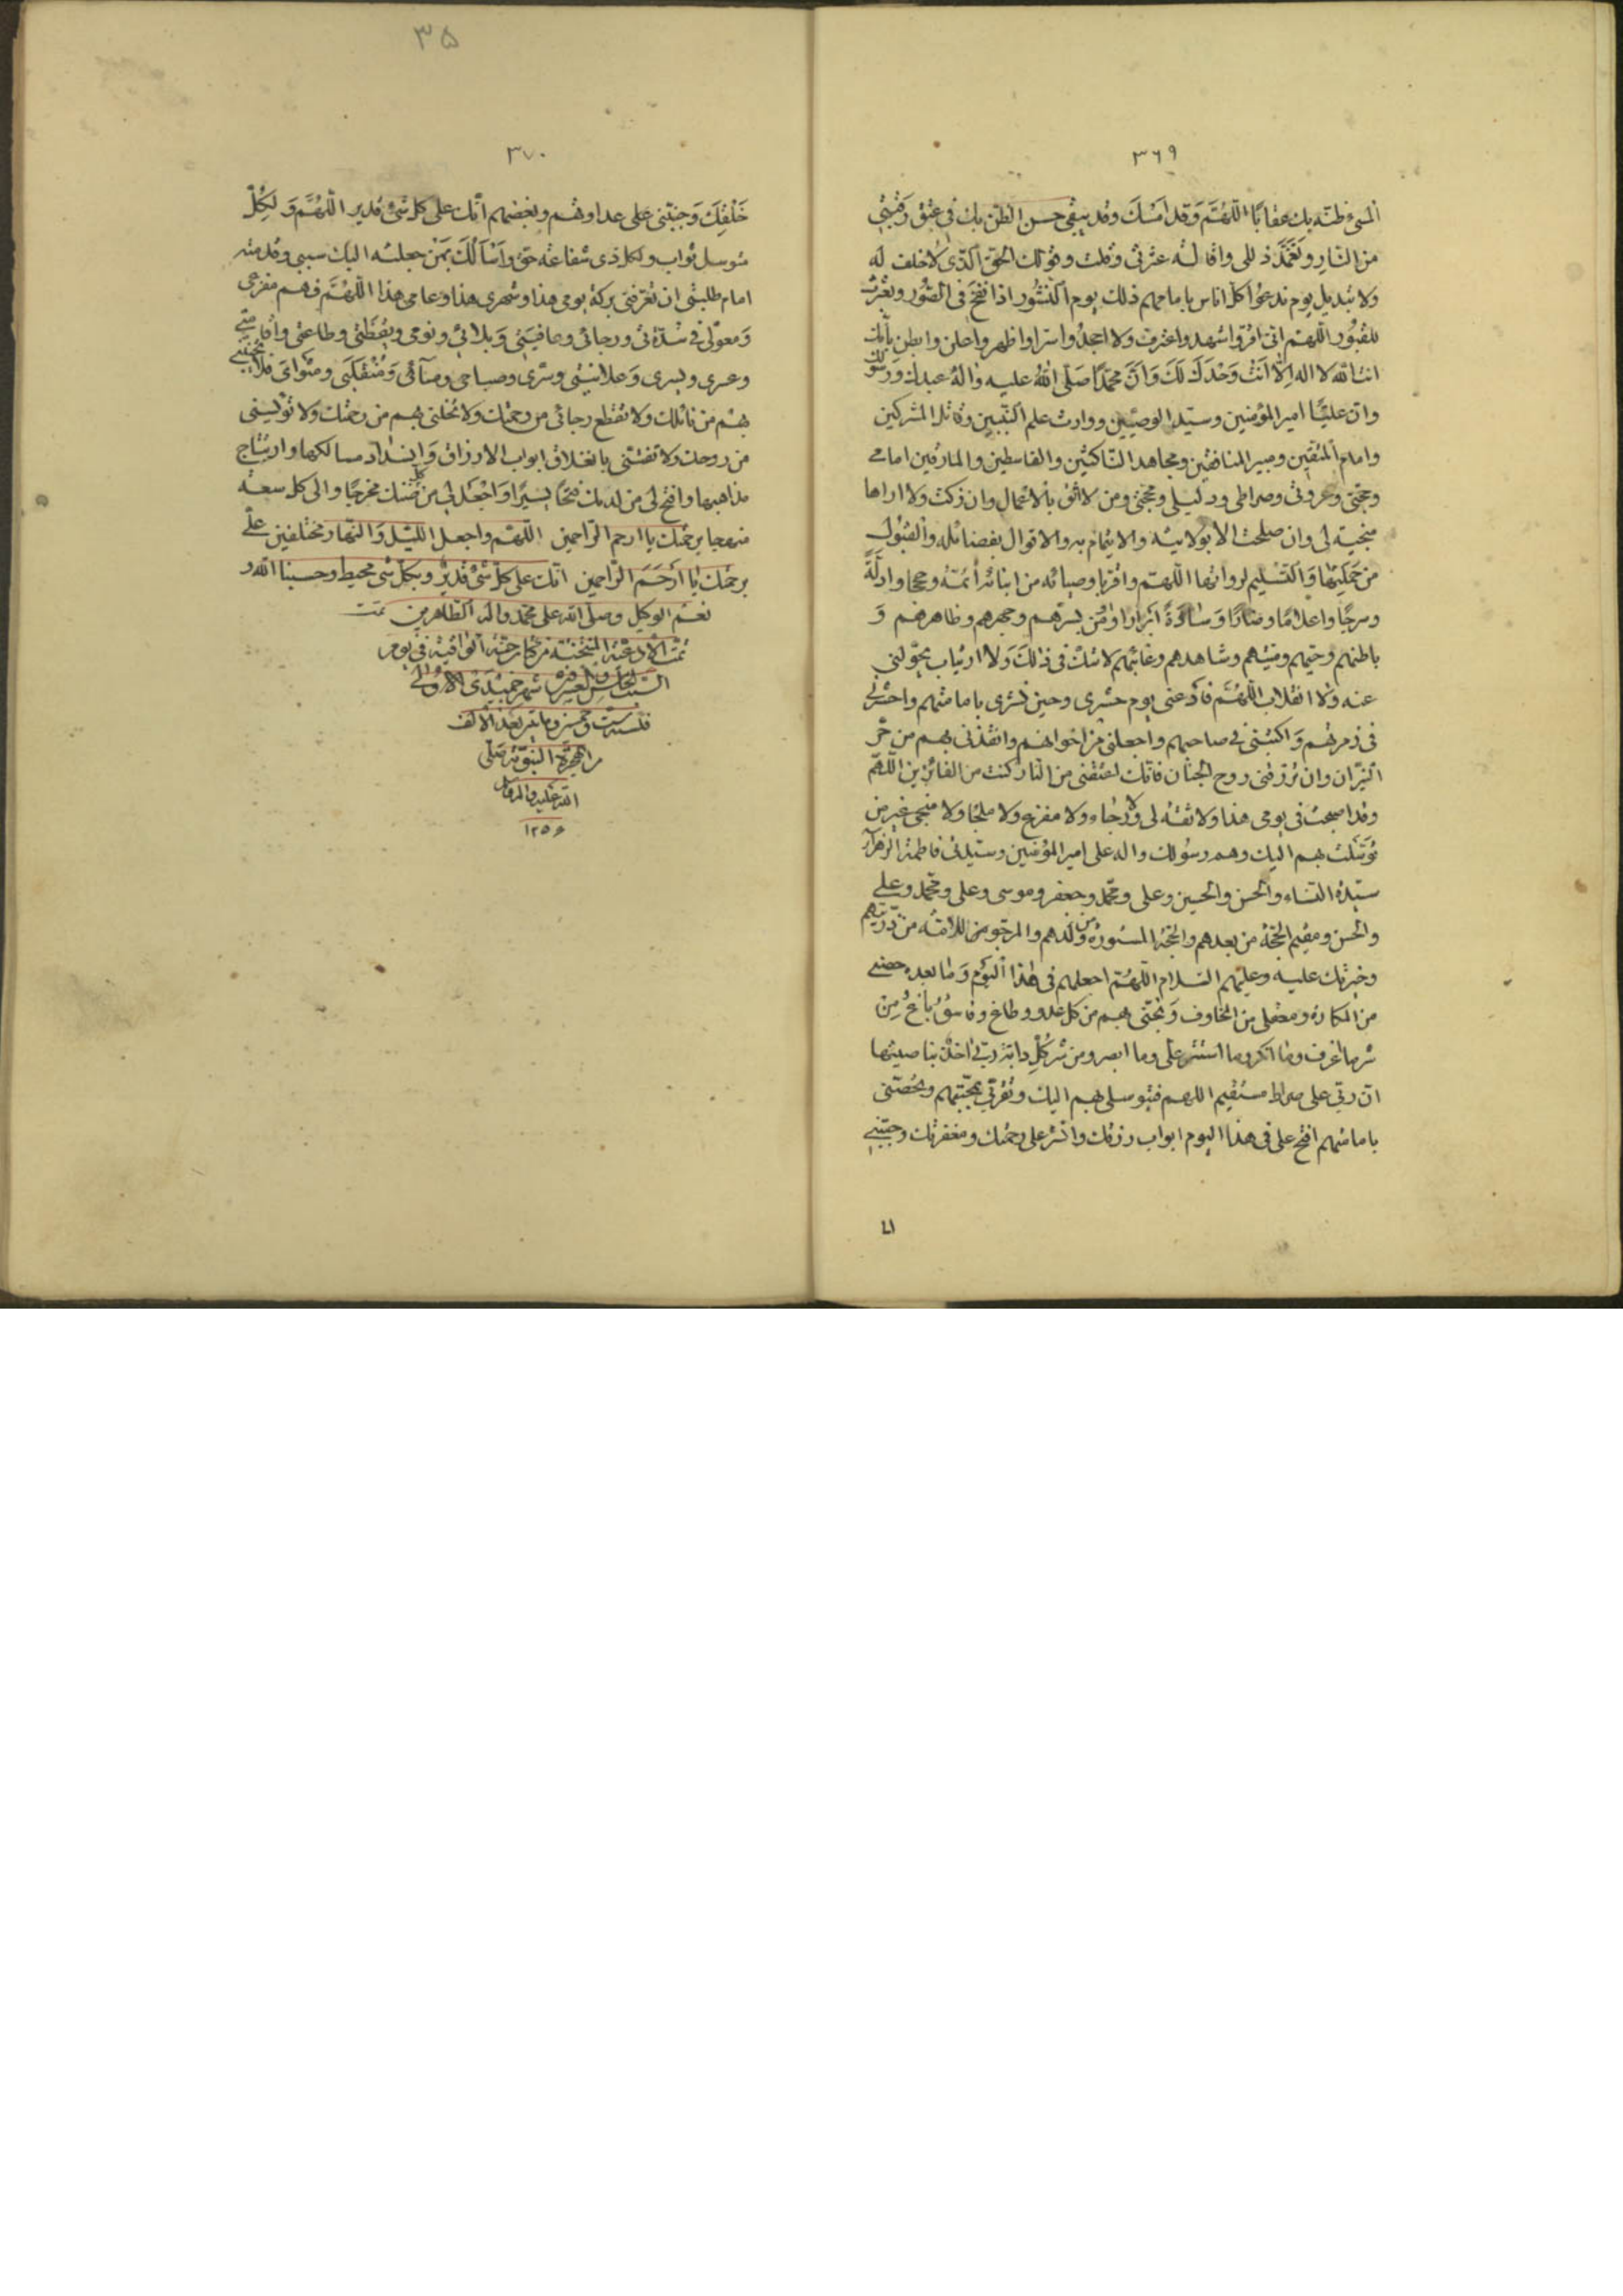 ٣٦٩
المسئ ظنه بك عقابا اللهم وقد امسك وقد يبقى حسن الظن بك في عتق رقبتي
من النار وتغمد ذللى واقالة عثرتى وقلت وقولك الحق الذى لا خلف له
ولا تبديل يوم ندعوا كل اناس بامامهم ذلك يوم النشور اذا نفخ فى الصور وبعثرت
القبور اللهم انى اقر واشهد واعترف ولا اجحد واسر واظهر واعلن وابطن بانك
انت الله لا اله الا انت وحدك لا شريك لك وان محمدا صلى الله عليه واله عبدك ورسولك
وان عليا امير المؤمنين وسيد الوصيين ووارث علم النبيين وقاتل المشركين
وامام المتقين ومبير المنافقين ومجاهد الناكثين والقاسطين والمارقين امامى
ومحجتى وعروتى وصراطى ودليلى وحجتى ومن لا اثق بالاعمال وان زكت ولا اراها
منجية لى وان صلحت الا بولايته والايتمام به والاقوال بفضائله والقبول
من حملتها والتسليم لرواتها اللهم واقر باوصيائه من ابنائه ائمة وحججا وادلة
وسرجا واعلاما ومنارا وسادة ابرارا واومن بسرهم وجهرهم وظاهرهم و
باطنهم وحيهم وميتهم وشاهدهم وغائبهم لا شك فى ذلك ولا ارتياب يحولنى
عنه ولا انقلاب اللهم فادعنى يوم حشرى وحين نشرى بامامتهم واحشرنى
فى زمرتهم واكتبنى فى اصحابهم واجعلنى من اخوانهم وانقذنى بهم من حر
النيران وان ترزقنى روح الجنان فانك ان اعتقتنى من النار كنت من الفائزين اللهم
وقد اصبحت فى يومى هذا ولا ثقة لى ولا رجاء ولا مفزع ولا ملجا ولا منجى غير من
توسلت بهم اليك وهم رسولك واله على امير المؤمنين وسيدتى فاطمة الزهراء
سيدة النساء والحسن والحسين وعلى ومحمد وجعفر وموسى وعلى ومحمد وعلى
والحسن ومقيم الحجة من بعدهم والحجة المستورة من ولدهم والمرجو للامة من ذريتهم
وخيرتك عليه وعليهم السلام اللهم اجعلهم فى هذا اليوم وما بعده حصنى
من المكاره ومعقلى من المخاوف ونجنى بهم من كل عدو وطاغ وفاسق باغ من
شر ما اعرف وما انكر وما استتر على وما ابصر ومن شر كل دابة ربى اخذ بناصيتها
ان ربى على صراط مستقيم اللهم فبتوسلى بهم اليك وتقربى بمحبتهم وتحصنى
بامامتهم افتح على فى هذا اليوم ابواب رزقك وانشر على رحمتك ومغفرتك وحببنى
٣٥
٣٧٠
خلقك وجنبنى على عداوتهم وبغضهم انك على كل شئ قدير اللهم ولكل
متوسل ثواب ولكل ذى شفاعة حق واسالك بمن جعلته اليك سببى وقدمته
امام طلبتى ان تعرفنى بركة يومى هذا وشهرى هذا وعامى هذا اللهم فهم مفزعى
ومعولى فى شدتى ورجائى وعافيتى وبلائى ونومى ويقظتى وطاعتى واقامتى
وعسرى ويسرى وعلانيتى وسرى وصباحى ومسائى ومنقلبى ومثواى فلا تخيبنى
بهم من نائلك ولا تقطع رجائى من رحمتك ولا تخلنى بهم من رحمتك ولا تؤيسنى
من روحك ولا تفتنى بانغلاق ابواب الارزاق وانسداد مسالكها وارتتاج
مذاهبها وافتح لى من لدنك فتحا يسيرا واجعل لى من كل ضنك مخرجا والى كل سعة
منهجا برحمتك يا ارحم الراحمين اللهم واجعل الليل والنهار مختلفين على
برحمتك يا ارحم الراحمين انك على كل شئ قدير وبكل شئ محيط وحسبنا الله و
نعم الوكيل وصلى الله على محمد واله الطاهرين تمت
تمت الادعية المنتخبة من كتاب جنة الواقية فى يوم
السبت الخامس والعشرون شهر جميدى الاولى
فى سنة ست وخمسين ومائتين بعد الالف
من الهجرة النبوية صلى
الله عليه واله
١٢٥٦